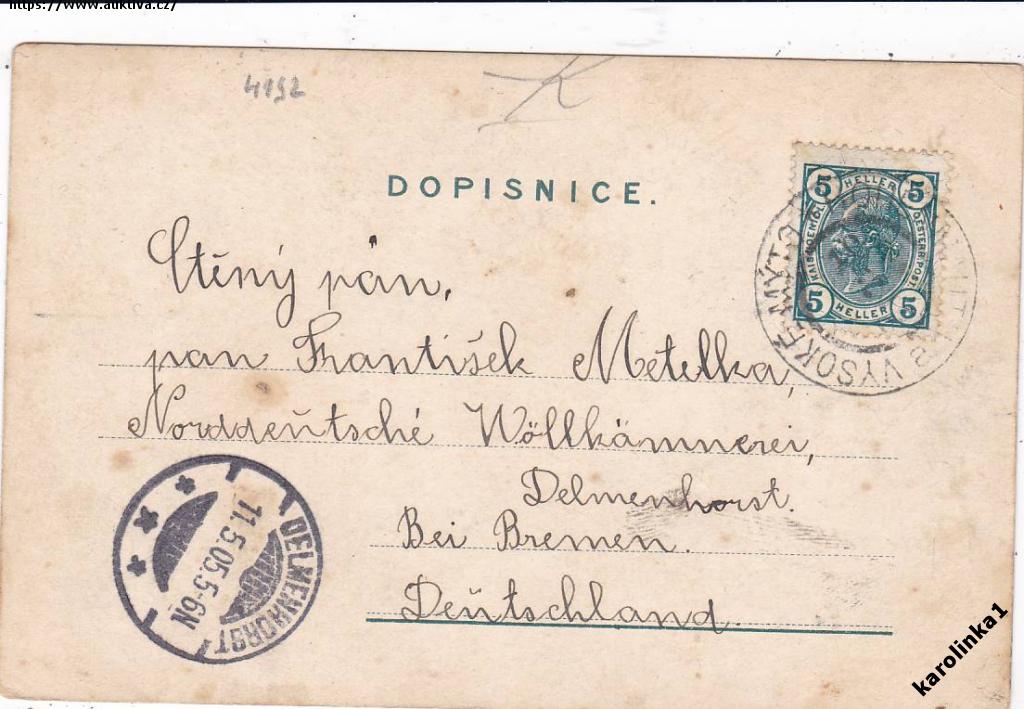 https://www.auktiva.cz/
4192
DOPISNICE.
5 HELLER 5
KAIS. KOENIGL. OESTERR. POST.
5 HELLER 5
VYSOKÉ MÝTO
Ctěný pán,
pan František Metelka,
Norddeŭtsché Wöllkämnerei,
Delmenhorst.
Bei Bremen.
Deŭtschland.
DELMENHORST
11.5.05.5-6N
karolinka1